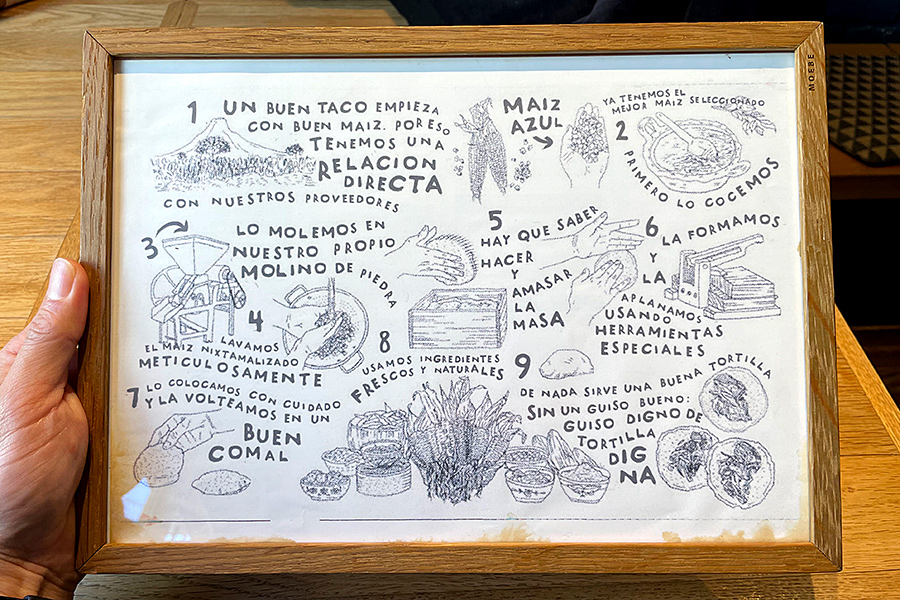 1 UN BUEN TACO EMPIEZA
CON BUEN MAIZ. POR ESO
TENEMOS UNA
RELACION
DIRECTA
CON NUESTROS PROVEEDORES
MAIZ
AZUL
YA TENEMOS EL
MEJOR MAIZ SELECCIONADO
2
PRIMERO LO COCEMOS
3
LO MOLEMOS EN
NUESTRO PROPIO
MOLINO DE PIEDRA
4
LAVAMOS
EL MAIZ NIXTAMALIZADO
METICULOSAMENTE
5
HAY QUE SABER
HACER
Y
AMASAR
LA
MASA
6
LA FORMAMOS
Y
LA
APLANAMOS
USANDO
HERRAMIENTAS
ESPECIALES
7 LO COLOCAMOS CON CUIDADO
Y LA VOLTEAMOS EN UN
BUEN
COMAL
8
USAMOS INGREDIENTES
FRESCOS Y NATURALES
9
DE NADA SIRVE UNA BUENA TORTILLA
SIN UN GUISO BUENO:
GUISO DIGNO DE
TORTILLA
DIG
NA
MOEBE